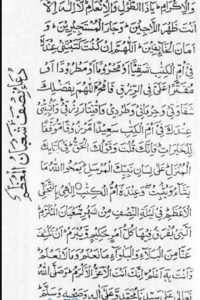 وَالْإِكْرَامِ ۞ يَا ذَا الطَّوْلِ وَالْإِنْعَامِ لَا إِلٰهَ إِلَّا
أَنْتَ ظَهْرَ اللَّاجِئِينَ ۞ وَجَارَ الْمُسْتَجِيرِينَ ۞ وَ
أَمَانَ الْخَائِفِينَ ۞ اللّٰهُمَّ إِنْ كُنْتَ كَتَبْتَنِي عِنْدَكَ
فِي أُمِّ الْكِتٰبِ شَقِيًّا أَوْ مَحْرُومًا أَوْ مَطْرُودًا أَوْ
مُقَتَّرًا عَلَيَّ فِي الرِّزْقِ فَامْحُ اللّٰهُمَّ بِفَضْلِكَ
شَقَاوَتِي وَحِرْمَانِي وَطَرْدِي وَاقْتِتَارَ رِزْقِي وَأَثْبِتْنِي
عِنْدَكَ فِي أُمِّ الْكِتٰبِ سَعِيدًا مَرْزُوقًا مُوَفَّقًا
لِلْخَيْرَاتِ فَإِنَّكَ قُلْتَ وَقَوْلُكَ الْحَقُّ فِي كِتَابِكَ
الْمُنَزَّلِ عَلَى لِسَانِ نَبِيِّكَ الْمُرْسَلِ يَمْحُو اللّٰهُ مَا
يَشَاءُ وَيُثْبِتُ ۞ وَعِنْدَهُ أُمُّ الْكِتٰبِ إِلٰهِي بِالتَّجَلِّي
الْأَعْظَمِ فِي لَيْلَةِ النِّصْفِ مِنْ شَهْرِ شَعْبَانَ الْمُكَرَّمِ
الَّتِي يُفْرَقُ فِيهَا كُلُّ أَمْرٍ حَكِيمٍ وَيُبْرَمُ ۞ أَنْ تَكْشِفَ
عَنَّا مِنَ الْبَلَاءِ وَالْبَلْوَاءِ مَا نَعْلَمُ وَمَا لَا نَعْلَمُ
وَأَنْتَ بِهِ أَعْلَمُ إِنَّكَ أَنْتَ الْأَعَزُّ الْأَكْرَمُ وَصَلَّى اللّٰهُ
تَعَالَى عَلَى سَيِّدِنَا مُحَمَّدٍ وَعَلَى اٰلِهِ وَصَحْبِهِ وَسَلَّمَ
دعاء نصف شعبان المعظم